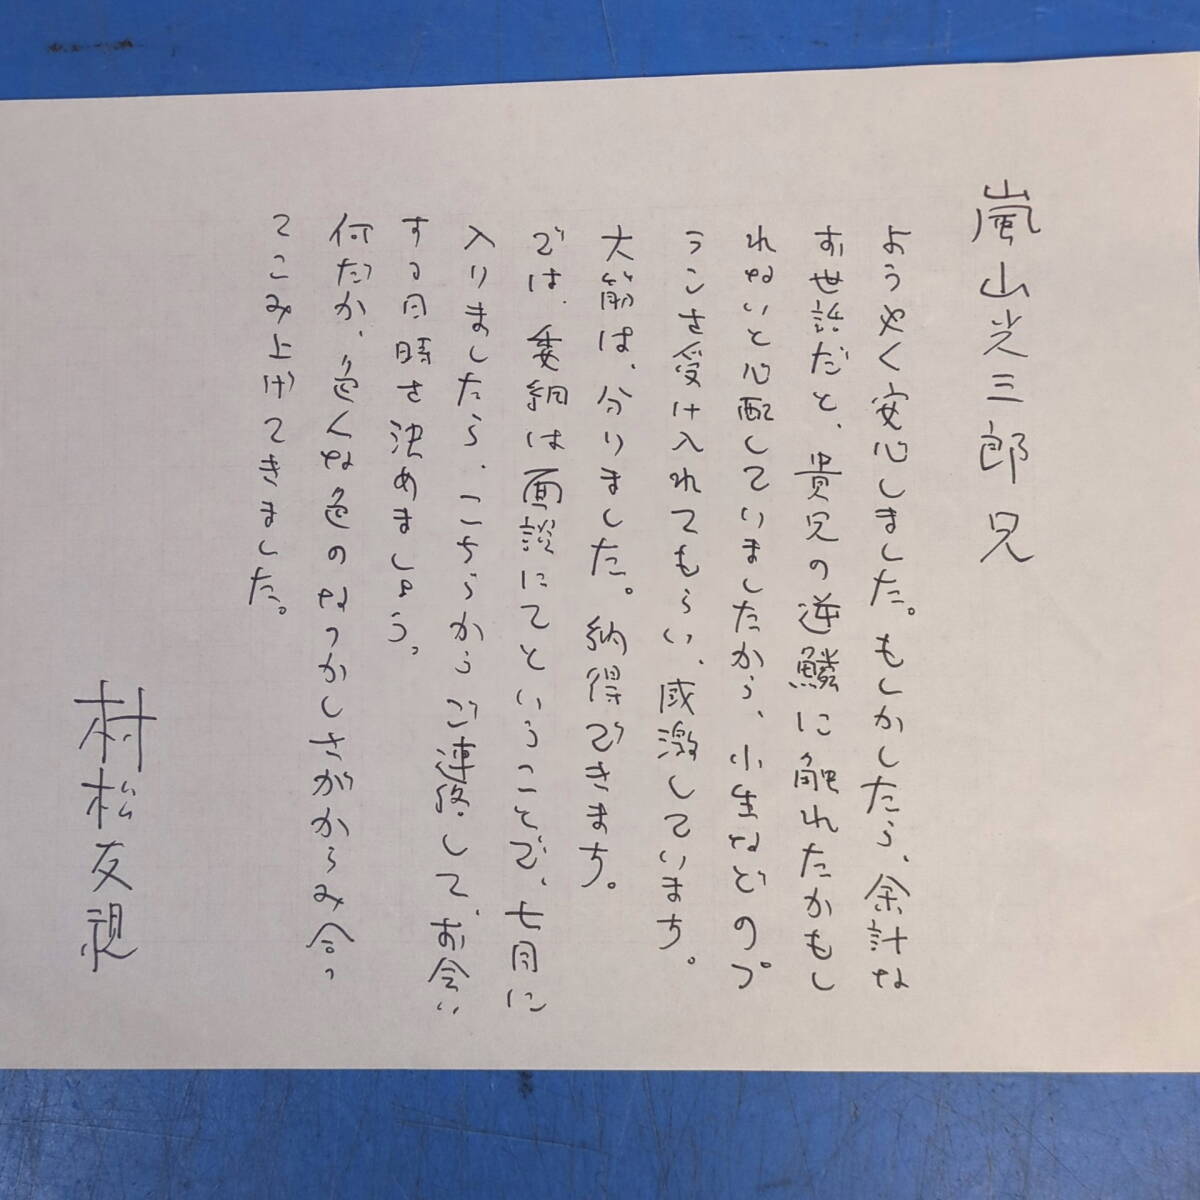 嵐山光三郎兄
ようやく安心しました。もしかしたら、余計な
お世話だと、貴兄の逆鱗に触れたかもし
れないと心配していましたから、小生などのプ
ランを受け入れてもらい、感激しています。
大筋は、分りました。納得できます。
では、委細は面談にてということで、七月に
入りましたら、こちらからご連絡して、お会い
する日時を決めましょう。
何だか、色んな色のなつかしさがからみ合っ
てこみ上げてきました。
村松友視